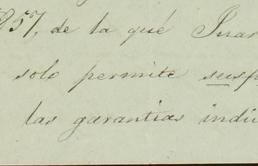 57, de la qué Juar
solo permite susp
las garantias indiv